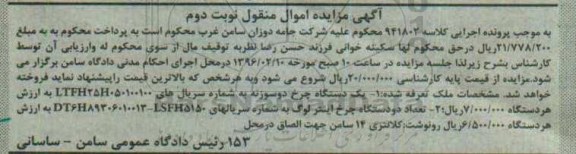 آگهی مزایده اموال منقول نوبت دوم
به موجب پرونده اجرایی کلاسه ۹۴۱۸۰۲ محکوم علیه شرکت جامه دوزان سامن غرب محکوم است به پرداخت محکوم به به مبلغ
۲۱/۷۷۸/۲۰۰ریال درحق محکوم لها سکینه خوانی فرزند حسن رضا نظربه توقیف مال از سوی محکوم له وارزیابی آن توسط
کارشناس بشرح زیرلذا جلسه مزایده در ساعت ۱۰ صبح مورخه ۱۳۹۶/۰۲/۱۰ درمحل اجرای احکام مدنی دادگاه سامن برگزار می
شود.مزایده از قیمت پایه کارشناسی ۲۰/۰۰۰/۰۰۰ریال شروع می شود وبه هرشخص که بالاترین قیمت راپیشنهاد نماید فروخته
خواهد شد. مشخصات ملک تعرفه شده:۱- یک دستگاه چرخ دوسوزنه به شماره سریال جای LTFH۲۵H۰۵۰۱۰۰۱۰ به ارزش
هردستگاه ۷/۰۰۰/۰۰۰ریال:۲- تعداد دودستگاه چرخ اینترلوگ به شماره سریالهای LSFH۵۱۵۰-DT۶H۸۹۳۰۶۰۱۰۰۱۳ به ارزش
هردستگاه ۶/۵۰۰/۰۰۰ریال رونوشت:کلانتری ۱۴ سامن جهت الصاق درمحل
۱۵۳-رئیس دادگاه عمومی سامن - ساسانی